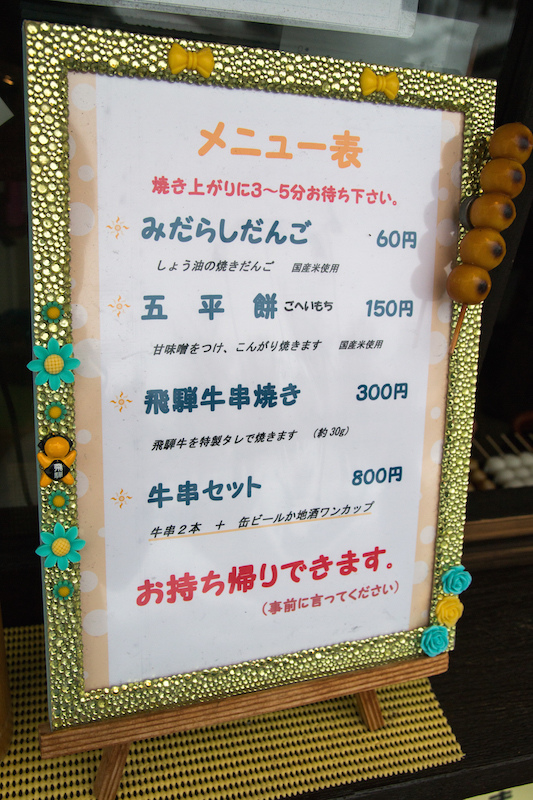 メニュー表
焼き上がりに3～5分お待ち下さい。
みだらしだんご 60円
しょう油の焼きだんご 国産米使用
五平餅 ごへいもち 150円
甘味噌をつけ、こんがり焼きます 国産米使用
飛騨牛串焼き 300円
飛騨牛を特製タレで焼きます （約30g）
牛串セット 800円
牛串２本 ＋ 缶ビールか地酒ワンカップ
お持ち帰りできます。
（事前に言ってください）